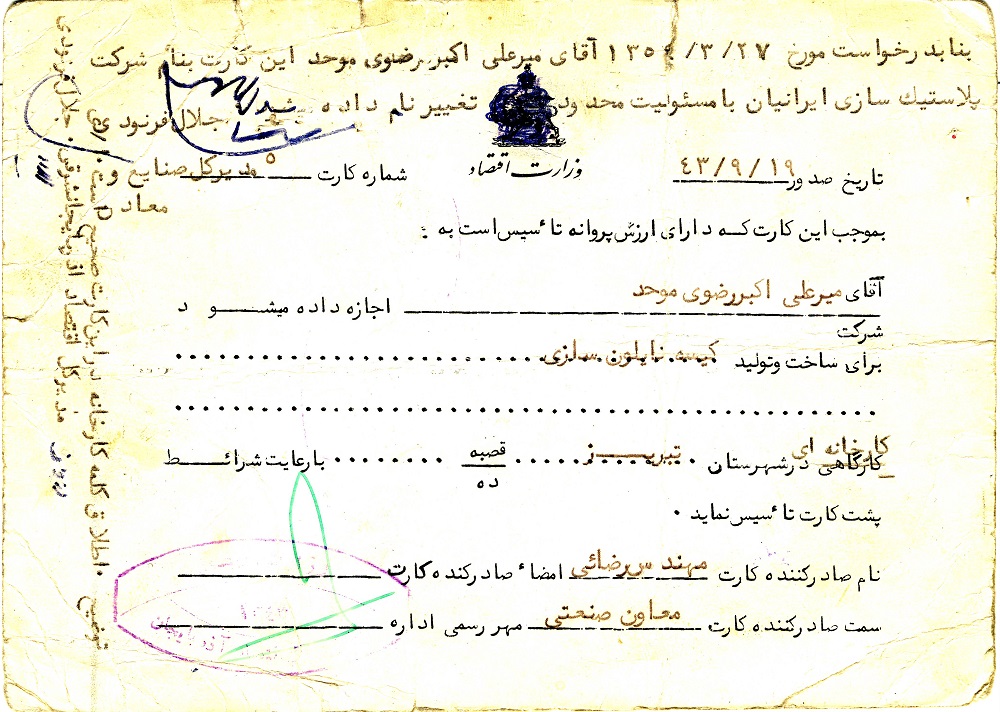 بنا بدرخواست مورخ ۱۳۵٤/۳/۲۷ آقای میرعلی اکبر رضوی موحد این کارت بنام شرکت
پلاستیك سازی ایرانیان با مسئولیت محدود تغییر نام داده میشود . جلال فرنودی
مدیرکل صنایع و
معادن
وزارت اقتصاد
تاریخ صدور ٤۳/۹/۱۹
شماره کارت ۵
بموجب این کارت که دارای ارزش پروانه تاٴسیس است به :
آقای میرعلی اکبر رضوی موحد اجازه داده میشود
شرکت
برای ساخت وتولید کیسه نایلون سازی
کارخانه ای
کارگاهی درشهرستان تبریز قصبه بارعایت شرائط
ده
پشت کارت تاٴسیس نماید .
نام صادرکننده کارت مهندس رضائی امضاٴ صادرکنده کارت
سمت صادرکننده کارت معاون صنعتی مهر رسمی اداره
توضیح اطلاق کلمه کارخانه در این کارت صحیح است
مدیرکل اقتصاد آذربایجانشرقی . جلال فرنودی